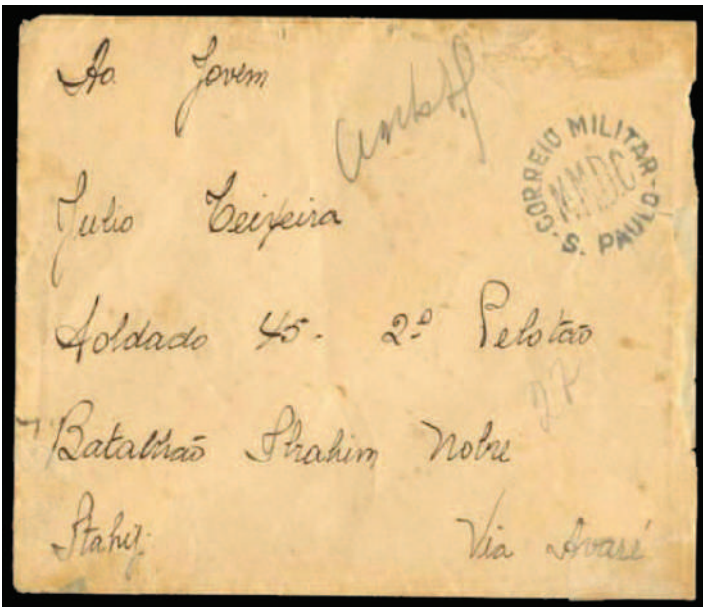 Ao Jovem
CORREIO MILITAR
MMDC
S. PAULO
Julio Teixeira
Soldado 45. 2º Pelotão
Batalhão Ibrahim Nobre
Itahy. Via Avaré